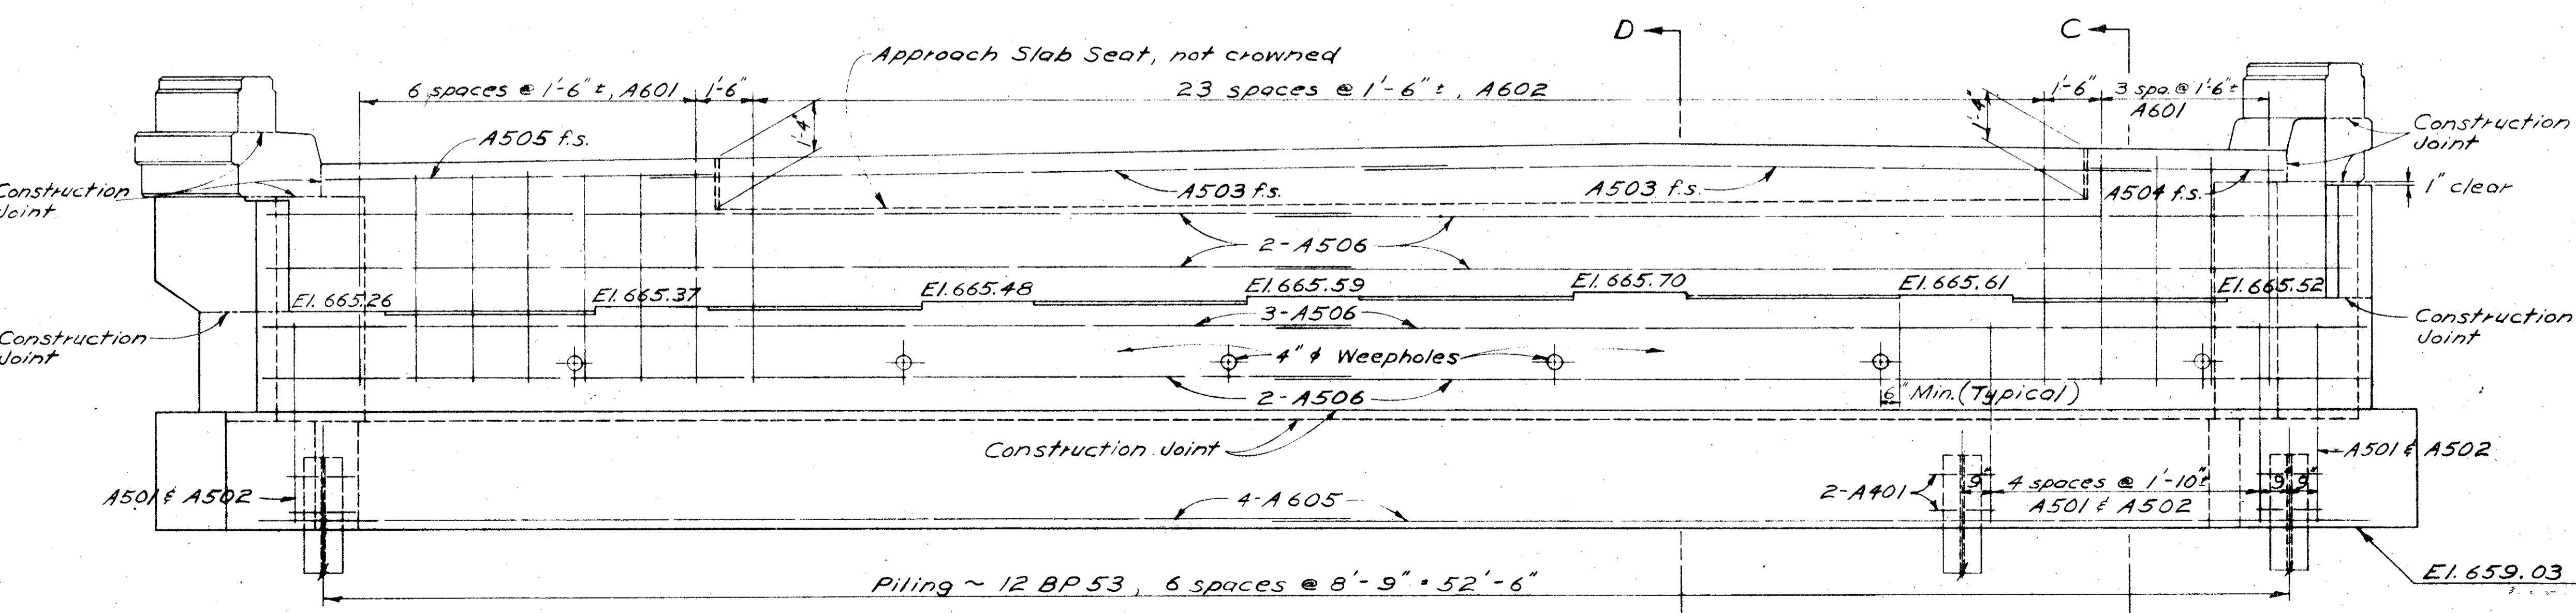 D
C
Approach Slab Seat, not crowned
6 spaces @ 1'-6" ±, A601
1'-6"
23 spaces @ 1'-6" ±, A602
1'-6"
3 spa. @ 1'-6" ±
A601
1'-4"
1'-4"
A505 f.s.
Construction
Joint
Construction
Joint
A503 f.s.
A503 f.s.
A504 f.s.
1" clear
2-A506
El. 665.26
El. 665.37
El. 665.48
El. 665.59
El. 665.70
El. 665.61
El. 665.52
Construction
Joint
3-A506
Construction
Joint
4" ϕ Weepholes
2-A506
6" Min. (Typical)
Construction Joint
A501 & A502
A501 & A502
4-A605
2-A401
9"
4 spaces @ 1'-10" ±
A501 & A502
9"
9"
Piling ~ 12 BP 53, 6 spaces @ 8'-9" = 52'-6"
El. 659.03